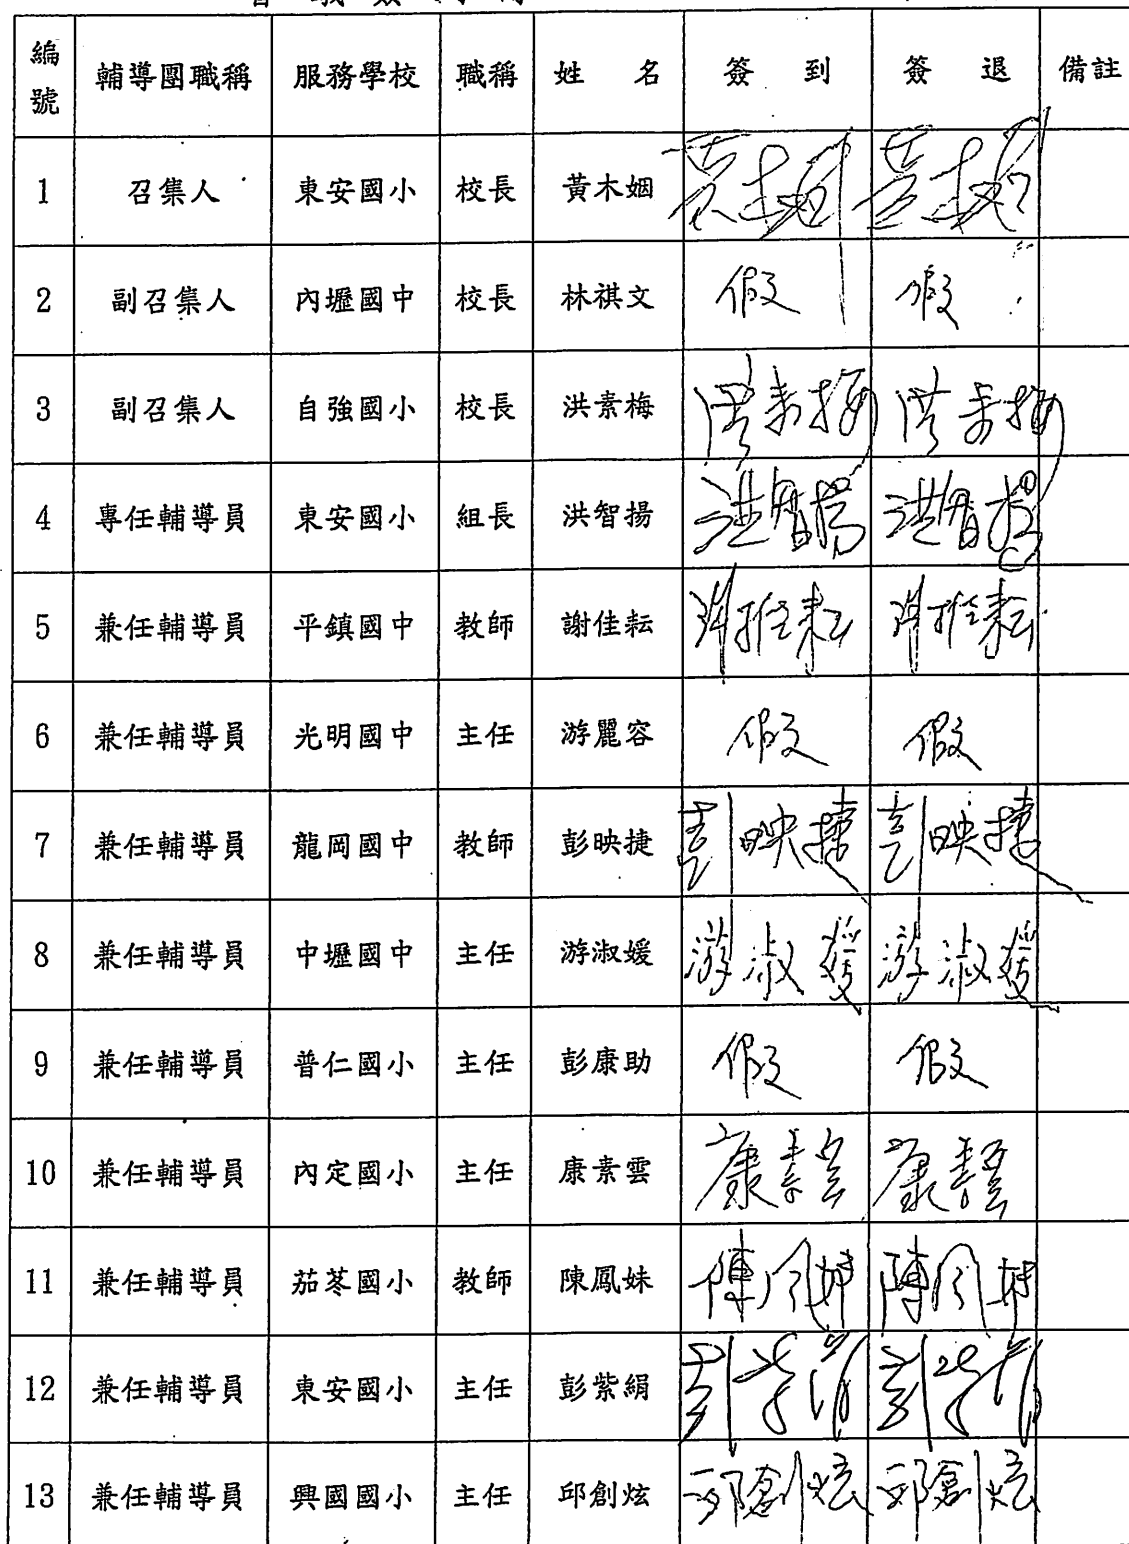 編號 輔導團職稱 服務學校 職稱 姓 名 簽 到 簽 退 備註
1 召集人 東安國小 校長 黃木姻 黃木姻 黃木姻
2 副召集人 內壢國中 校長 林祺文 假 假
3 副召集人 自強國小 校長 洪素梅 洪素梅 洪素梅
4 專任輔導員 東安國小 組長 洪智揚 洪智揚 洪智揚
5 兼任輔導員 平鎮國中 教師 謝佳耘 謝佳耘 謝佳耘
6 兼任輔導員 光明國中 主任 游麗容 假 假
7 兼任輔導員 龍岡國中 教師 彭映捷 彭映捷 彭映捷
8 兼任輔導員 中壢國中 主任 游淑媛 游淑媛 游淑媛
9 兼任輔導員 普仁國小 主任 彭康助 假 假
10 兼任輔導員 內定國小 主任 康素雲 康素雲 康素雲
11 兼任輔導員 茄苳國小 教師 陳鳳妹 陳鳳妹 陳鳳妹
12 兼任輔導員 東安國小 主任 彭紫絹 彭紫絹 彭紫絹
13 兼任輔導員 興國國小 主任 邱創炫 邱創炫 邱創炫